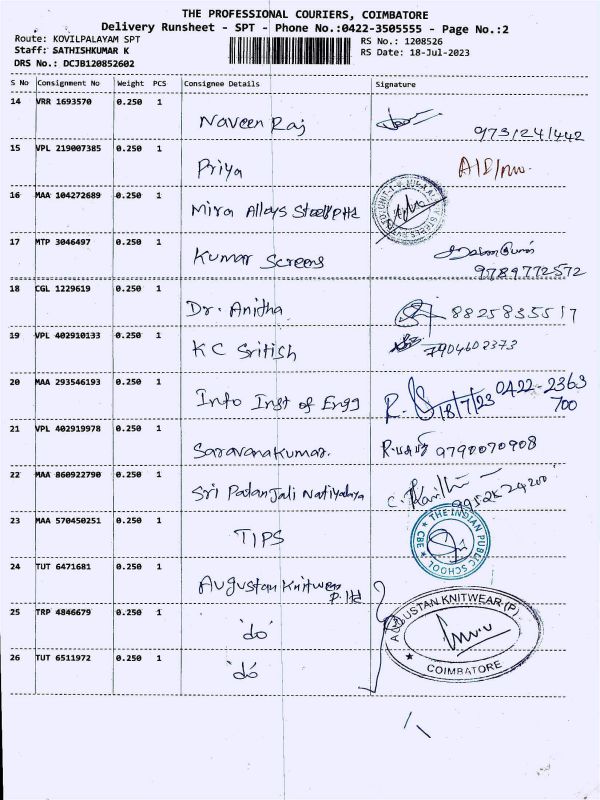 THE PROFESSIONAL COURIERS, COIMBATORE
Delivery Runsheet - SPT - Phone No.:0422-3505555 - Page No.:2
Route: KOVILPALAYAM SPT RS No.: 1208526
Staff: SATHISHKUMAR K RS Date: 18-Jul-2023
DRS No.: DCJB120852602
S No Consignment No Weight PCS Consignee Details Signature
14 VRR 1693570 0.250 1
Naveen Raj 9731241442
15 VPL 219007385 0.250 1
Priya
16 MAA 104272689 0.250 1
Mira Alloys Steel P Ltd
17 MTP 3046497 0.250 1
Kumar Screens
9789772572
18 CGL 1229619 0.250 1
Dr. Anitha 8825835517
19 VPL 402910133 0.250 1
KC Sritish 7904602373
20 MAA 293546193 0.250 1
Info Inst of Engg R. 18/7/23 0422-2363
700
21 VPL 402919978 0.250 1
Saravanakumar. 9790070908
22 MAA 860922790 0.250 1
Sri Patanjali Natiyalaya 9952824200
23 MAA 570450251 0.250 1
TIPS THE INDIAN PUBLIC SCHOOL ★ CBE ★
24 TUT 6471681 0.250 1
Augustan Knitwear
P. Ltd
25 TRP 4846679 0.250 1
'do' AUGUSTAN KNITWEAR (P)
26 TUT 6511972 0.250 1
'do' ★ COIMBATORE